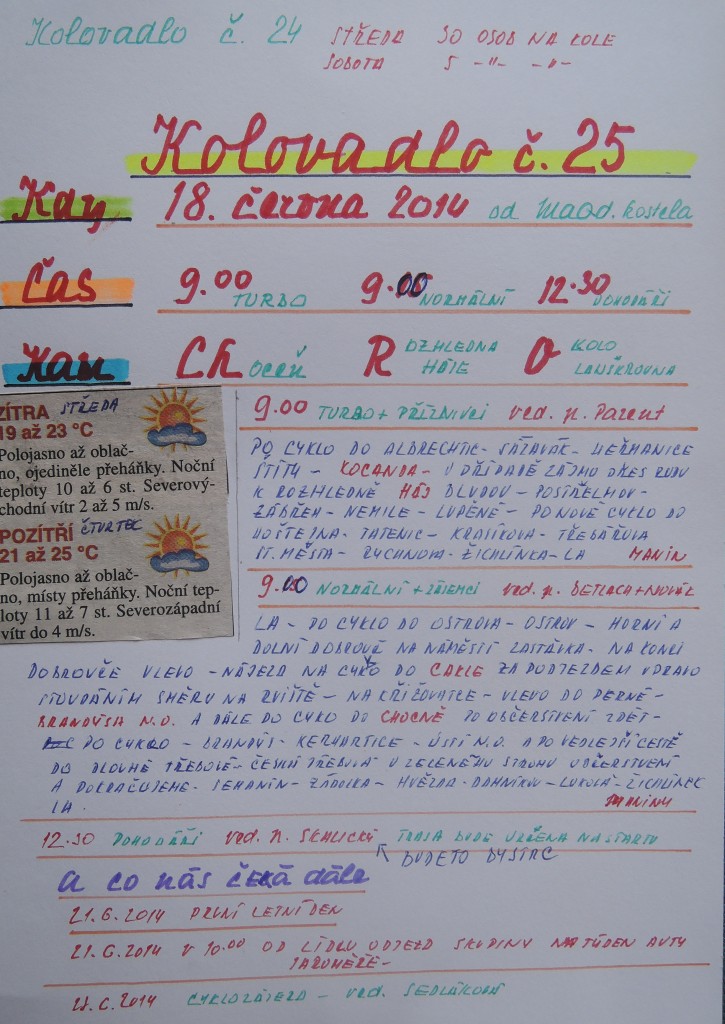 Kolovadlo č. 24 STŘEDA 30 OSOB NA KOLE
SOBOTA 5 -"- -"-
Kolovadlo č. 25
Kdy 18. června 2014 od Maod. kostela
Čas 9.00 TURBO 9.00 NORMÁLNÍ 12.30 POHODÁŘI
Kam CHoceň ROZHLEDNA HÁJ OKOLO LANŠKROUNA
ZÍTRA STŘEDA
19 až 23 °C
Polojasno až oblač-
no, ojediněle přeháňky. Noční
teploty 10 až 6 st. Severový-
chodní vítr 2 až 5 m/s.
POZÍTŘÍ ČTVRTEK
21 až 25 °C
Polojasno až oblač-
no, místy přeháňky. Noční tep-
loty 11 až 7 st. Severozápadní
vítr do 4 m/s.
9.00 TURBO + PŘÍZNIVCI ved. p. Parent
PO CYKLO DO ALBRECHTIC - SÁZAVA - HEŘMANICE
ŠTÍTY - KOCANDA - V PŘÍPADĚ ZÁJMU PŘES RUDU
K ROZHLEDNĚ HÁJ BLUDOV - POSTŘELMOV -
ZÁBŘEH - NEMILE - LUPĚNÉ - PO NOVÉ CYKLO DO
HOŠTEJNA - TATENIC - KRASÍKOVA - TŘEBAŘOVA
ST. MĚSTA - RYCHNOVA - ŽICHLÍNKA - LA
9.00 NORMÁLNÍ + ZÁJEMCI ved. p. BETLACH + NOVÁK
LA - PO CYKLO DO OSTROVA - OSTROV - HORNÍ A
DOLNÍ DOBROUČ NA NÁMĚSTÍ ZASTÁVKA - NA KONCI
DOBROUČE VLEVO - NÁJEZD NA CYKLO DO CAKLE ZA PODJEZDEM VPRAVO
STOUPÁNÍM SMĚRU NA ŘVIŠTĚ - NA KŘIŽOVATCE - VLEVO DO PERNÉ -
BRANDÝSA N.O. A DÁLE PO CYKO DO CHOCNĚ PO OBČERSTVENÍ ZPĚT -
PO CYKLO - BRANDÝS - KERHARTICE - ÚSTÍ N.O. A PO VEDLEJŠÍ CESTĚ
DO DLOUHÉ TŘEBOVÉ - ČESKÁ TŘEBOVÁ U ZELENÉHO STROMU OBČERSTVENÍ
A POKRAČUJEME - SEMANÍN - ZÁDOLKA - HVĚZDA - DAMNÍKOV - LUKOVÁ - ŽICHLÍNEK
LA.
12.30 POHODÁŘI ved. p. SKALICKÝ TRASA BUDE URČENA NA STARTU
BUDE TO BYSTREC
A co nás čeká dále
21.6.2014 PRVNÍ LETNÍ DEN
21.6.2014 v 10.00 OD LÍDLU ODJEZD SKUPINY NA TÝDEN AUTY
JAROMĚŘ -
CYKLOZÁJEZD - ved. SEDLÁKOVÁ